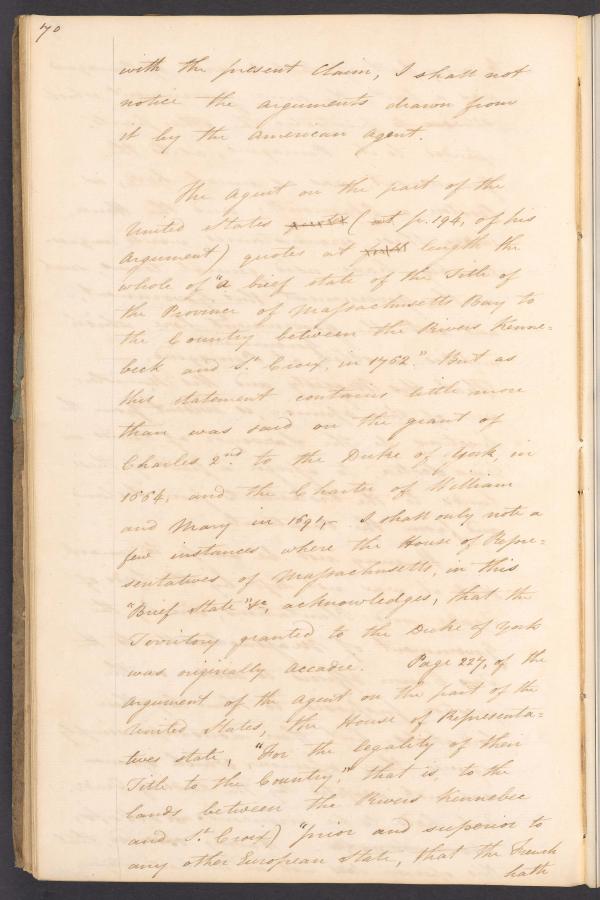 70
with the present Claim, I shall not
notice the arguments drawn from
it by the American Agent.
The Agent on the part of the
United States (at p. 194, of his
Argument) quotes at length the
whole of "a brief state of the Title of
the Province of Massachusetts Bay to
the Country between the Rivers Kenne=
beck and St. Croix, in 1762." But as
this statement contains little more
than was said on the grant of
Charles 2nd. to the Duke of York, in
1664, and the Charter of William
and Mary in 1691,- I shall only note a
few instances where the House of Repre=
sentatives of Massachusetts, in this
"Brief State" &c, acknowledges, that the
Territory granted to the Duke of York
was originally Accadie. Page 227, of the
Argument of the Agent on the part of the
United States, the House of Representa=
tives state, "For the legality of their
Title to the Country," that is, to the
lands between the Rivers Kennebec
and St. Croix) "prior and superior to
any other European State, that the French
hath